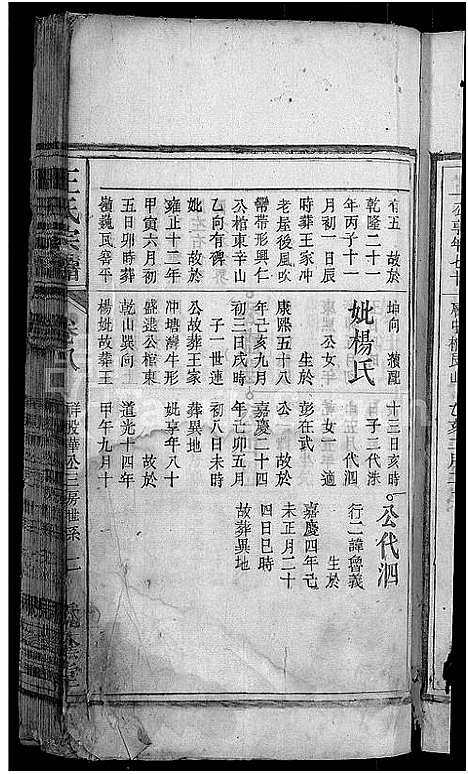 有五 故於
乾隆二十一
年丙子十一
月初一日辰
時葬王家冲
老屋後風吹
帶形興仁
公棺東辛山
乙向有碑
妣 故於
雍正十二年
甲寅六月初
五日卯時葬
魏民窖平
坤向
妣楊氏
東 公女
生於
康熙五十八
年己亥九月
初三日戌時
子一世蓮
公故葬王家
冲塘灣牛形
盛遠公棺東
乾山巽向
楊妣故葬王
十三日亥時
子二代泗
女一適
彭在武
公 故於
嘉慶二十四
年己卯五月
初八日未時
葬異地
妣享年八十
故於
道光十四年
甲午九月十
公代泗
行二諱會義
生於
嘉慶四年己
未正月二十
四日巳時
故葬異地
王氏宗譜
卷八
祥股曄公三房世系